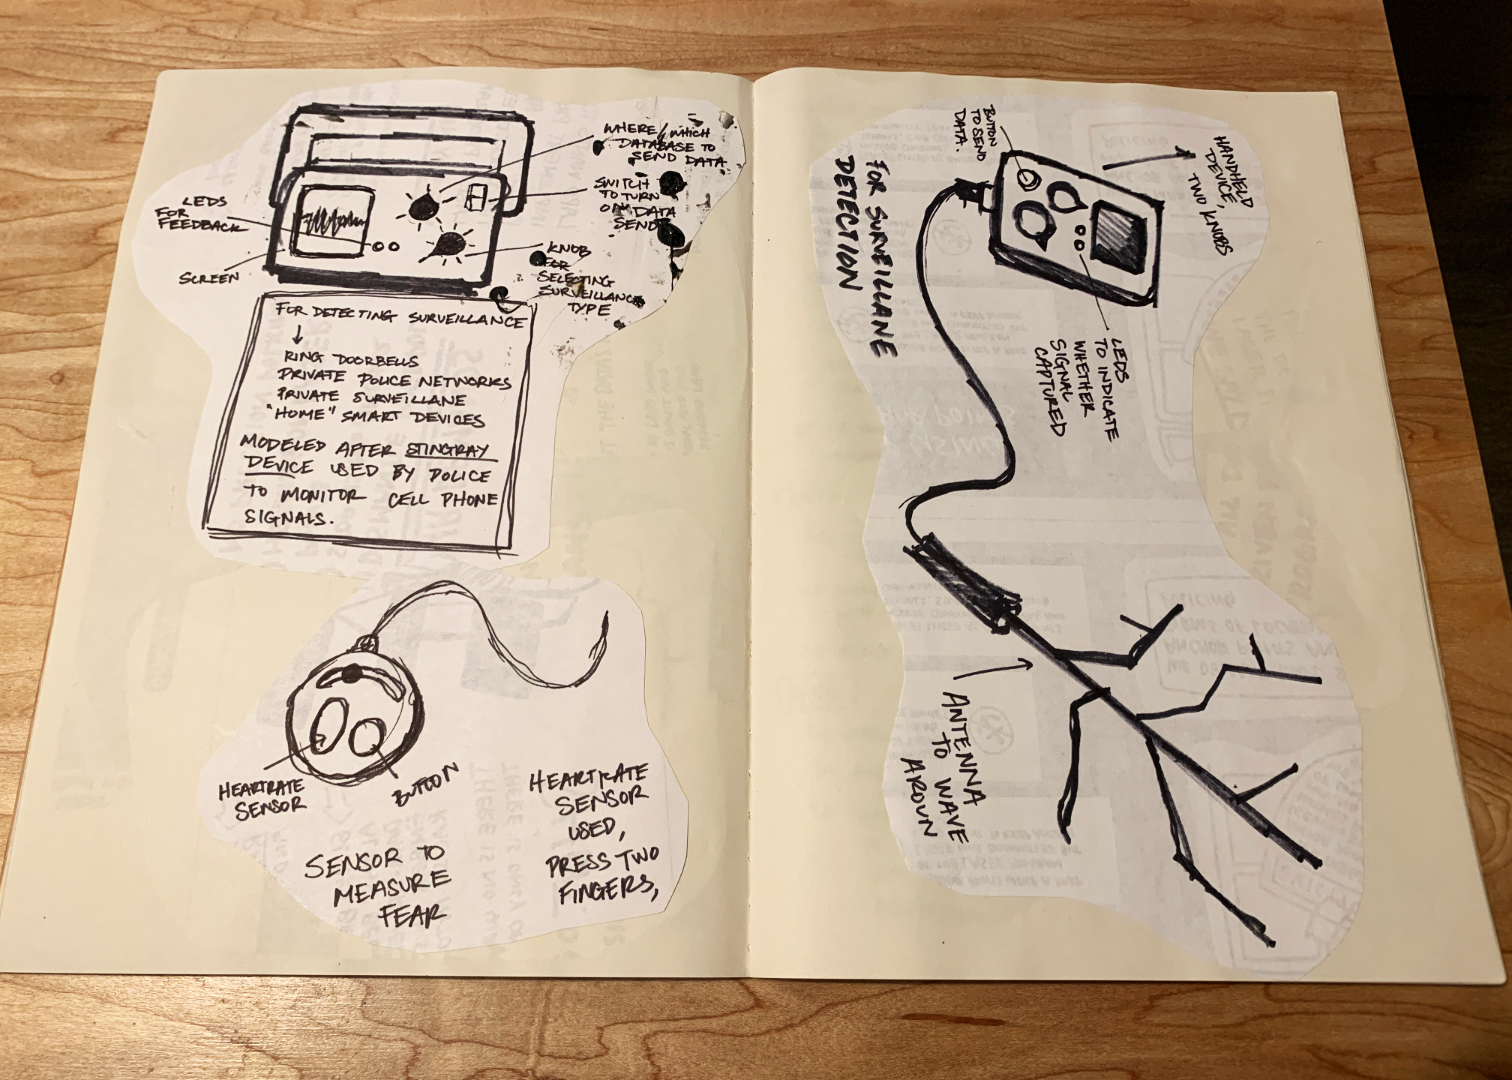 WHERE/WHICH
DATABASE TO
SEND DATA
SWITCH
TO TURN
DATA
SEND
KNOB
FOR
SELECTING
SURVEILLANCE
TYPE
LEDS
FOR
FEEDBACK
SCREEN
FOR DETECTING SURVEILLANCE
↓
RING DOORBELLS
PRIVATE POLICE NETWORKS
PRIVATE SURVEILLANE
"HOME" SMART DEVICES
MODELED AFTER STINGRAY
DEVICE USED BY POLICE
TO MONITOR CELL PHONE
SIGNALS.
HEARTRATE
SENSOR
BUTTON
SENSOR TO
MEASURE
FEAR
HEARTRATE
SENSOR
USED,
PRESS TWO
FINGERS,
BUTTON
TO SEND
DATA.
HANDHELD
DEVICE,
TWO KNOBS
FOR SURVEILLANE
DETECTION
LEDS
TO INDICATE
WHETHER
SIGNAL
CAPTURED
ANTENNA
TO WAVE
AROUN